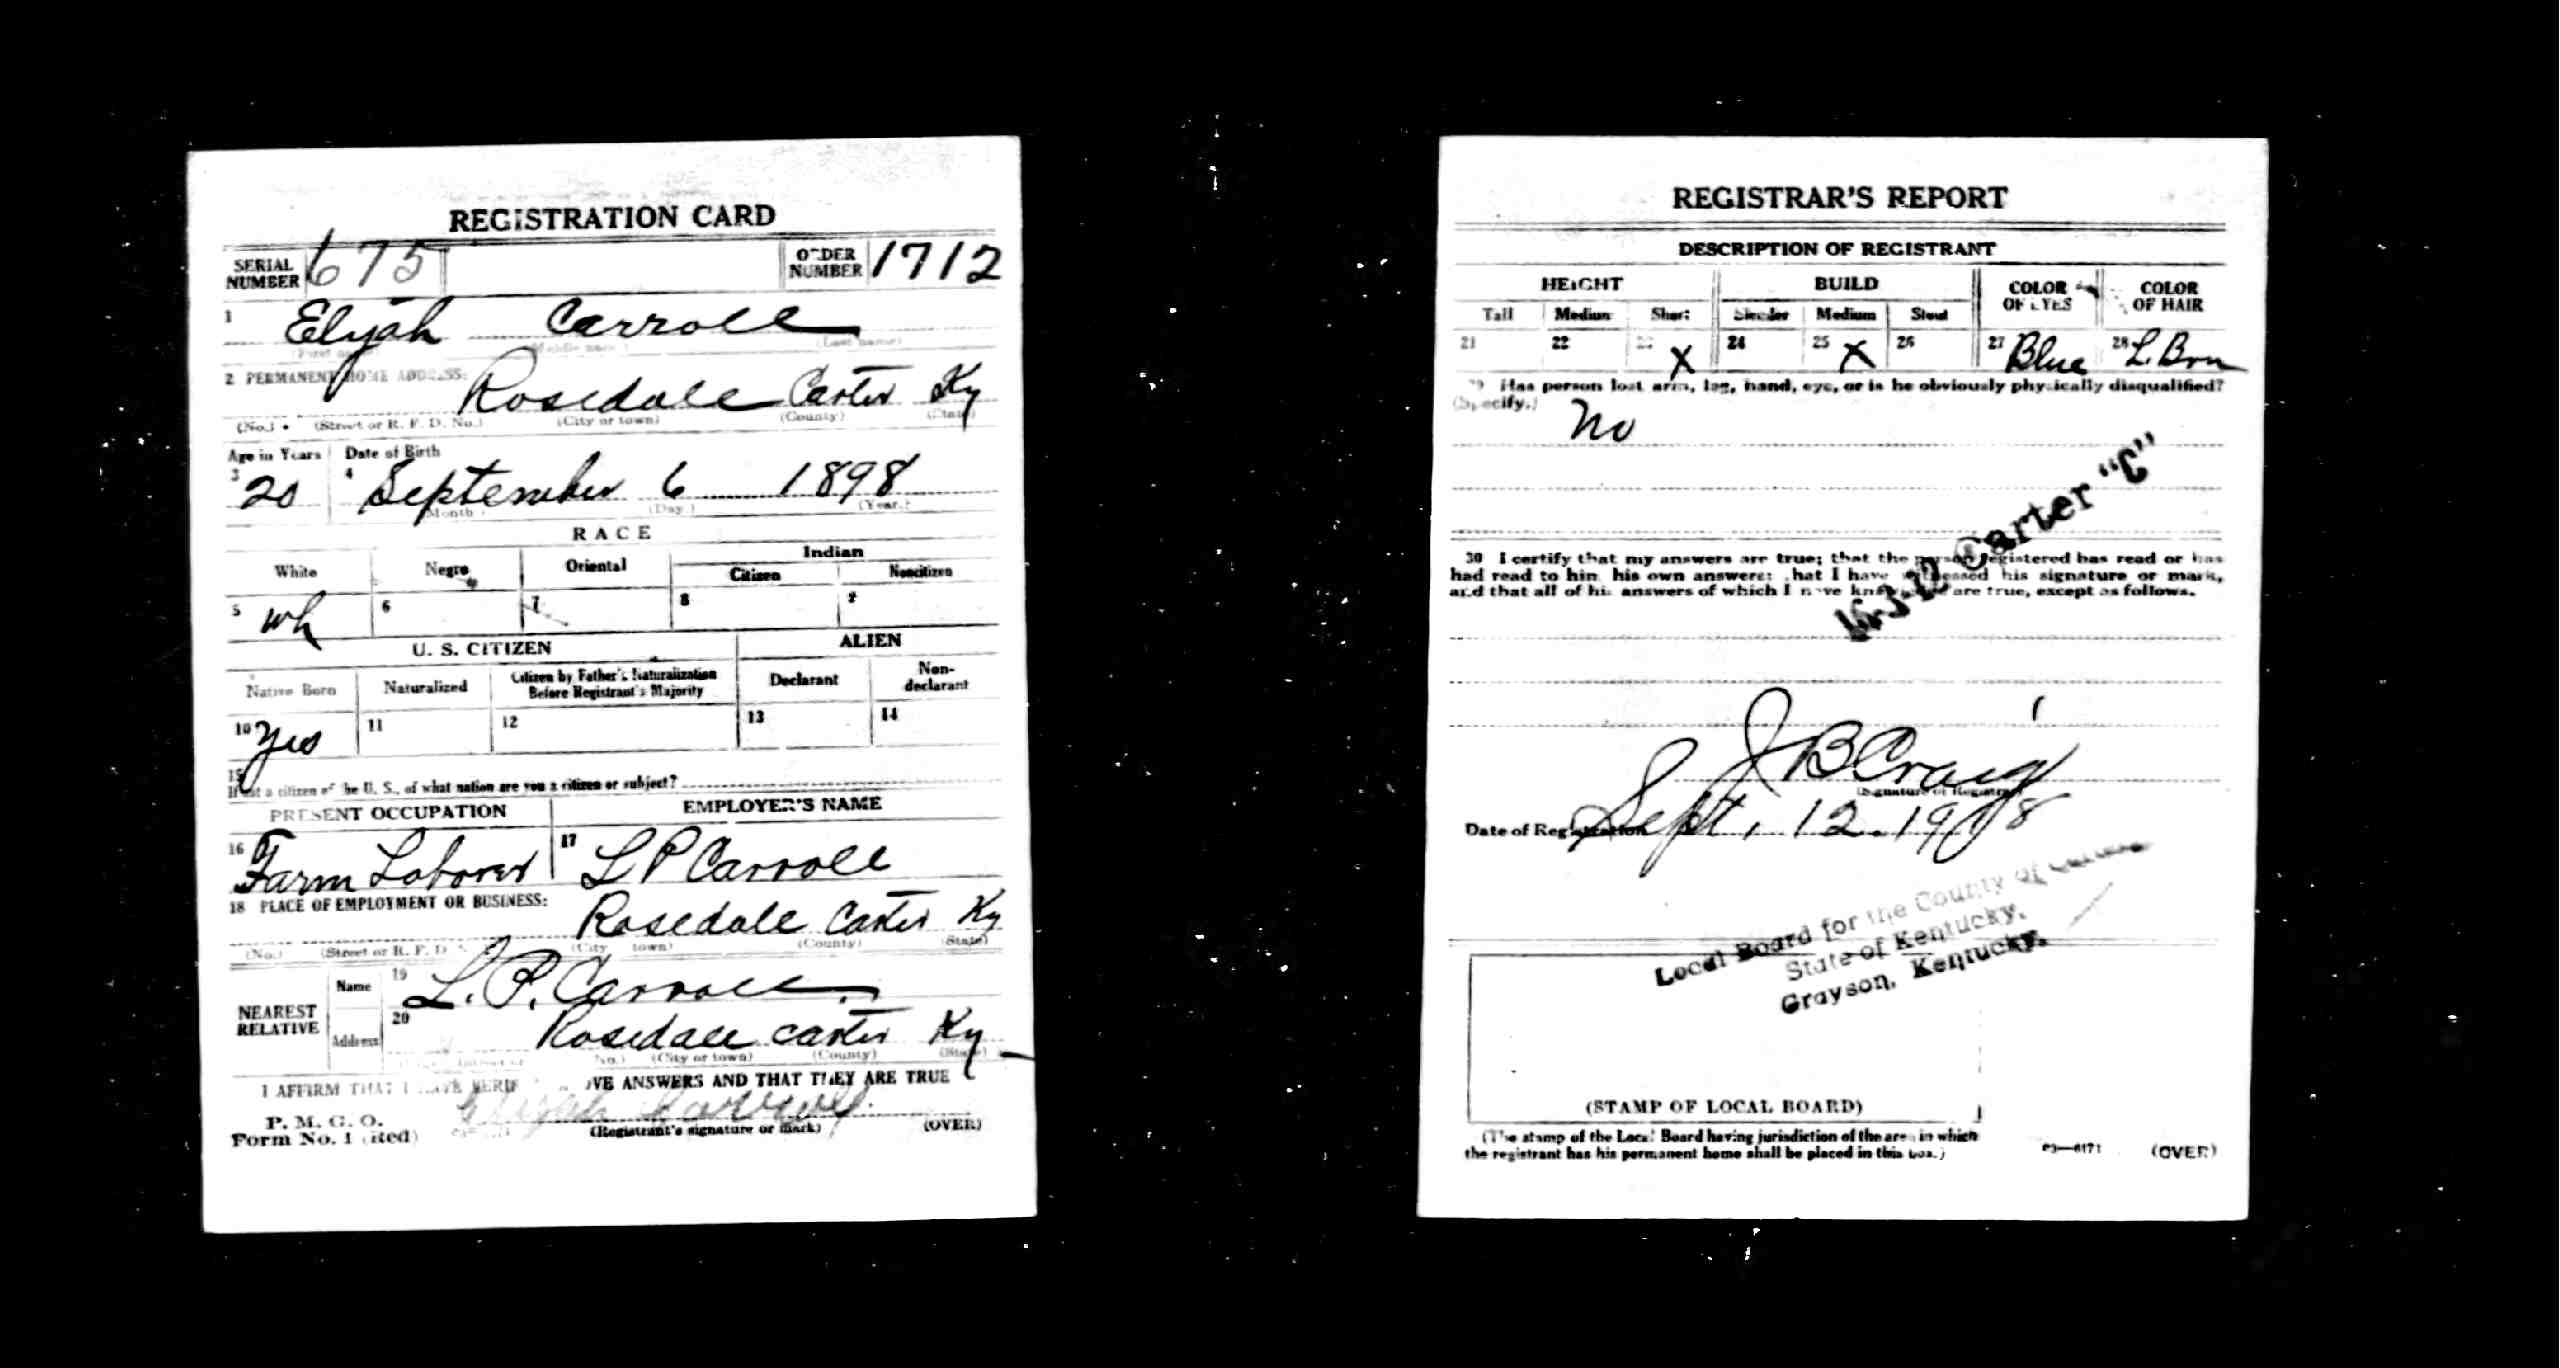 REGISTRATION CARD
SERIAL NUMBER 675 ORDER NUMBER 1712
1 Elijah Carroll
(First name) (Middle name) (Last name)
2 PERMANENT HOME ADDRESS:
Rosedale Carter Ky
(No.) (Street or R. F. D. No.) (City or town) (County) (State)
Age in Years Date of Birth
3 20 4 September 6 1898
(Month) (Day.) (Year.)
RACE
White Negro Oriental Indian
Citizen Noncitizen
5 wh 6 7 8 9
U. S. CITIZEN ALIEN
Native Born Naturalized Citizen by Father's Naturalization Before Registrant's Majority Declarant Non-declarant
10 Yes 11 12 13 14
15
If not a citizen of the U. S., of what nation are you a citizen or subject?
PRESENT OCCUPATION EMPLOYER'S NAME
16 Farm Laborer 17 L P Carroll
18 PLACE OF EMPLOYMENT OR BUSINESS:
Rosedale Carter Ky
(No.) (Street or R. F. D. (City town) (County) (State)
NEAREST RELATIVE Name 19 L. P. Carroll
Address 20 Rosedale Carter Ky
No.) (City or town) (County) (State)
I AFFIRM THAT I HAVE VERIFIED ABOVE ANSWERS AND THAT THEY ARE TRUE
P. M. G. O.
Form No. 1 (Red) Elijah Carroll
(Registrant's signature or mark) (OVER)
REGISTRAR'S REPORT
DESCRIPTION OF REGISTRANT
HEIGHT BUILD COLOR OF EYES COLOR OF HAIR
Tall Medium Short Slender Medium Stout
21 22 23 X 24 25 X 26 27 Blue 28 L. Brn
29 Has person lost arm, leg, hand, eye, or is he obviously physically disqualified?
(Specify.) No
30 I certify that my answers are true; that the person registered has read or has
had read to him his own answers; that I have witnessed his signature or mark,
and that all of his answers of which I have knowledge are true, except as follows.
Carter "C"
J B Craig
(Signature of Registrar)
Date of Registration Sept. 12. 1918
Local Board for the County of Carter,
State of Kentucky.
Grayson, Kentucky.
(STAMP OF LOCAL BOARD)
(The stamp of the Local Board having jurisdiction of the area in which
the registrant has his permanent home shall be placed in this box.)
(OVER)